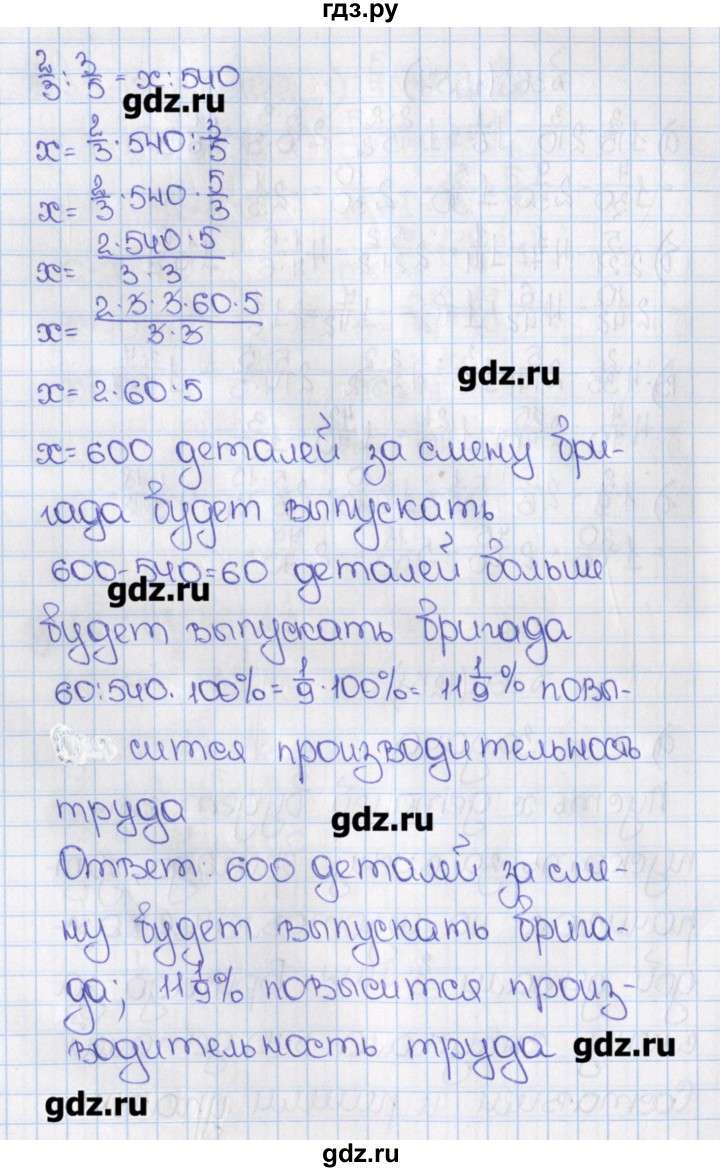 гдз.ру
2/3 : 3/5 = x : 540
gdz.ru
x = 2/3 · 540 : 3/5
x = 2/3 · 540 · 5/3
x = (2 · 540 · 5)/(3 · 3)
x = (2 · 3 · 3 · 60 · 5)/(3 · 3)
gdz.ru
x = 2 · 60 · 5
x = 600 деталей за смену бри-
гада будет выпускать
600 - 540 = 60 деталей больше
gdz.ru
будет выпускать бригада
60 : 540 · 100% = 1/9 · 100% = 11 1/9 % повы-
сится производительность
труда
gdz.ru
Ответ: 600 деталей за сме-
ну будет выпускать брига-
да; 11 1/9 % повысится произ-
водительность труда
gdz.ru
gdz.ru
gdz.ru